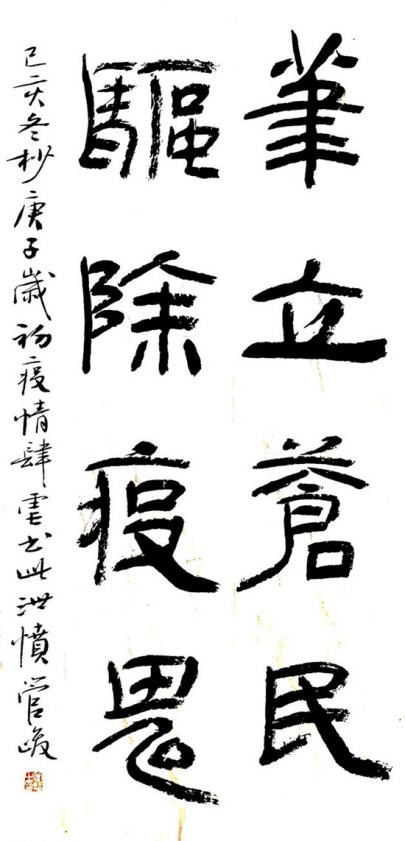 筆立蒼民
驅除疫鬼
己亥冬杪庚子歲初疫情肆虐书此泄憤管峻